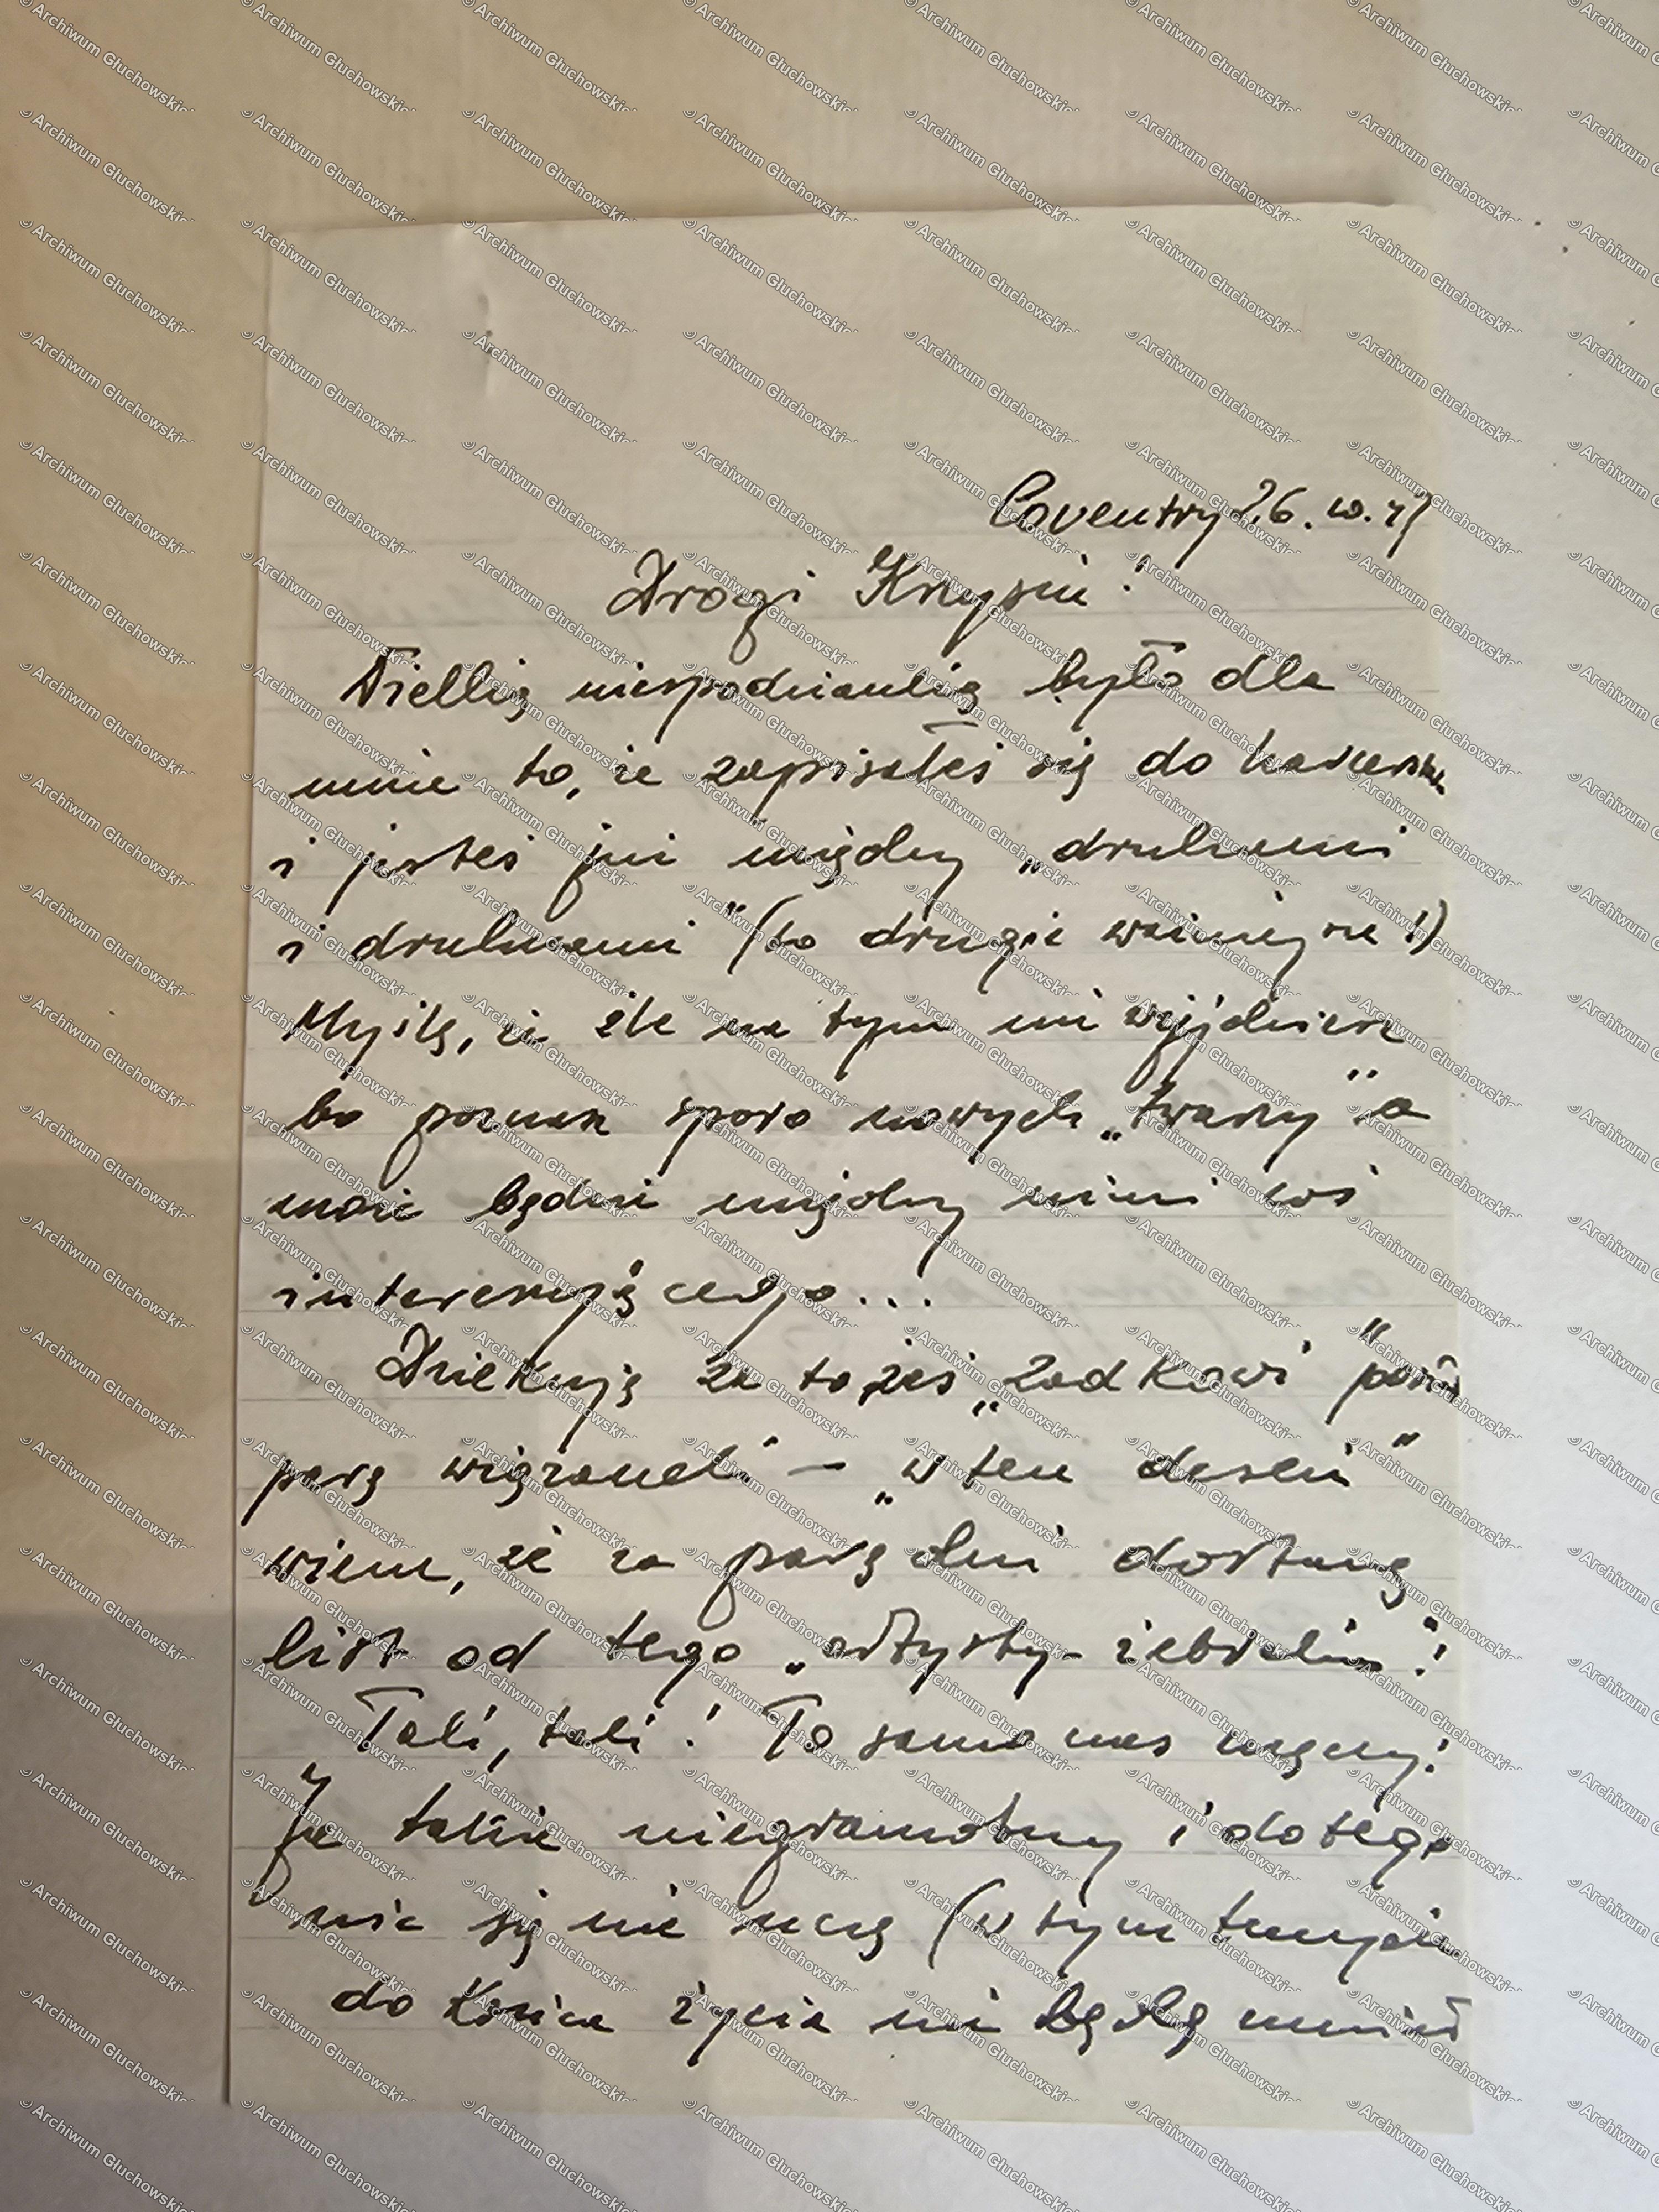 Coventry 26.10.47
Drogi Krzysiu!
Wielką niespodzianką było dla
mnie to, że zapisałeś się do harcerstwa
i jesteś już między „druhami
i druhnami" (to drugie ważniejsze!)
Myślę, że źle na tym nie wyjdziesz
bo poznasz sporo nowych „twarzy" a
może będzie między nimi coś
interesującego...
Dziękuję za to żeś „Zadkowi"
parę wiązanek – „w ten deseń"
wiem, że za parę dni dostanę
list od tego „artysty-
Tak, tak! To samo nas męczy!
Ja także niegramotny i do tego
nic się nie uczę (w tym
do końca życia nie będę umiał
© Archiwum Głuchowski